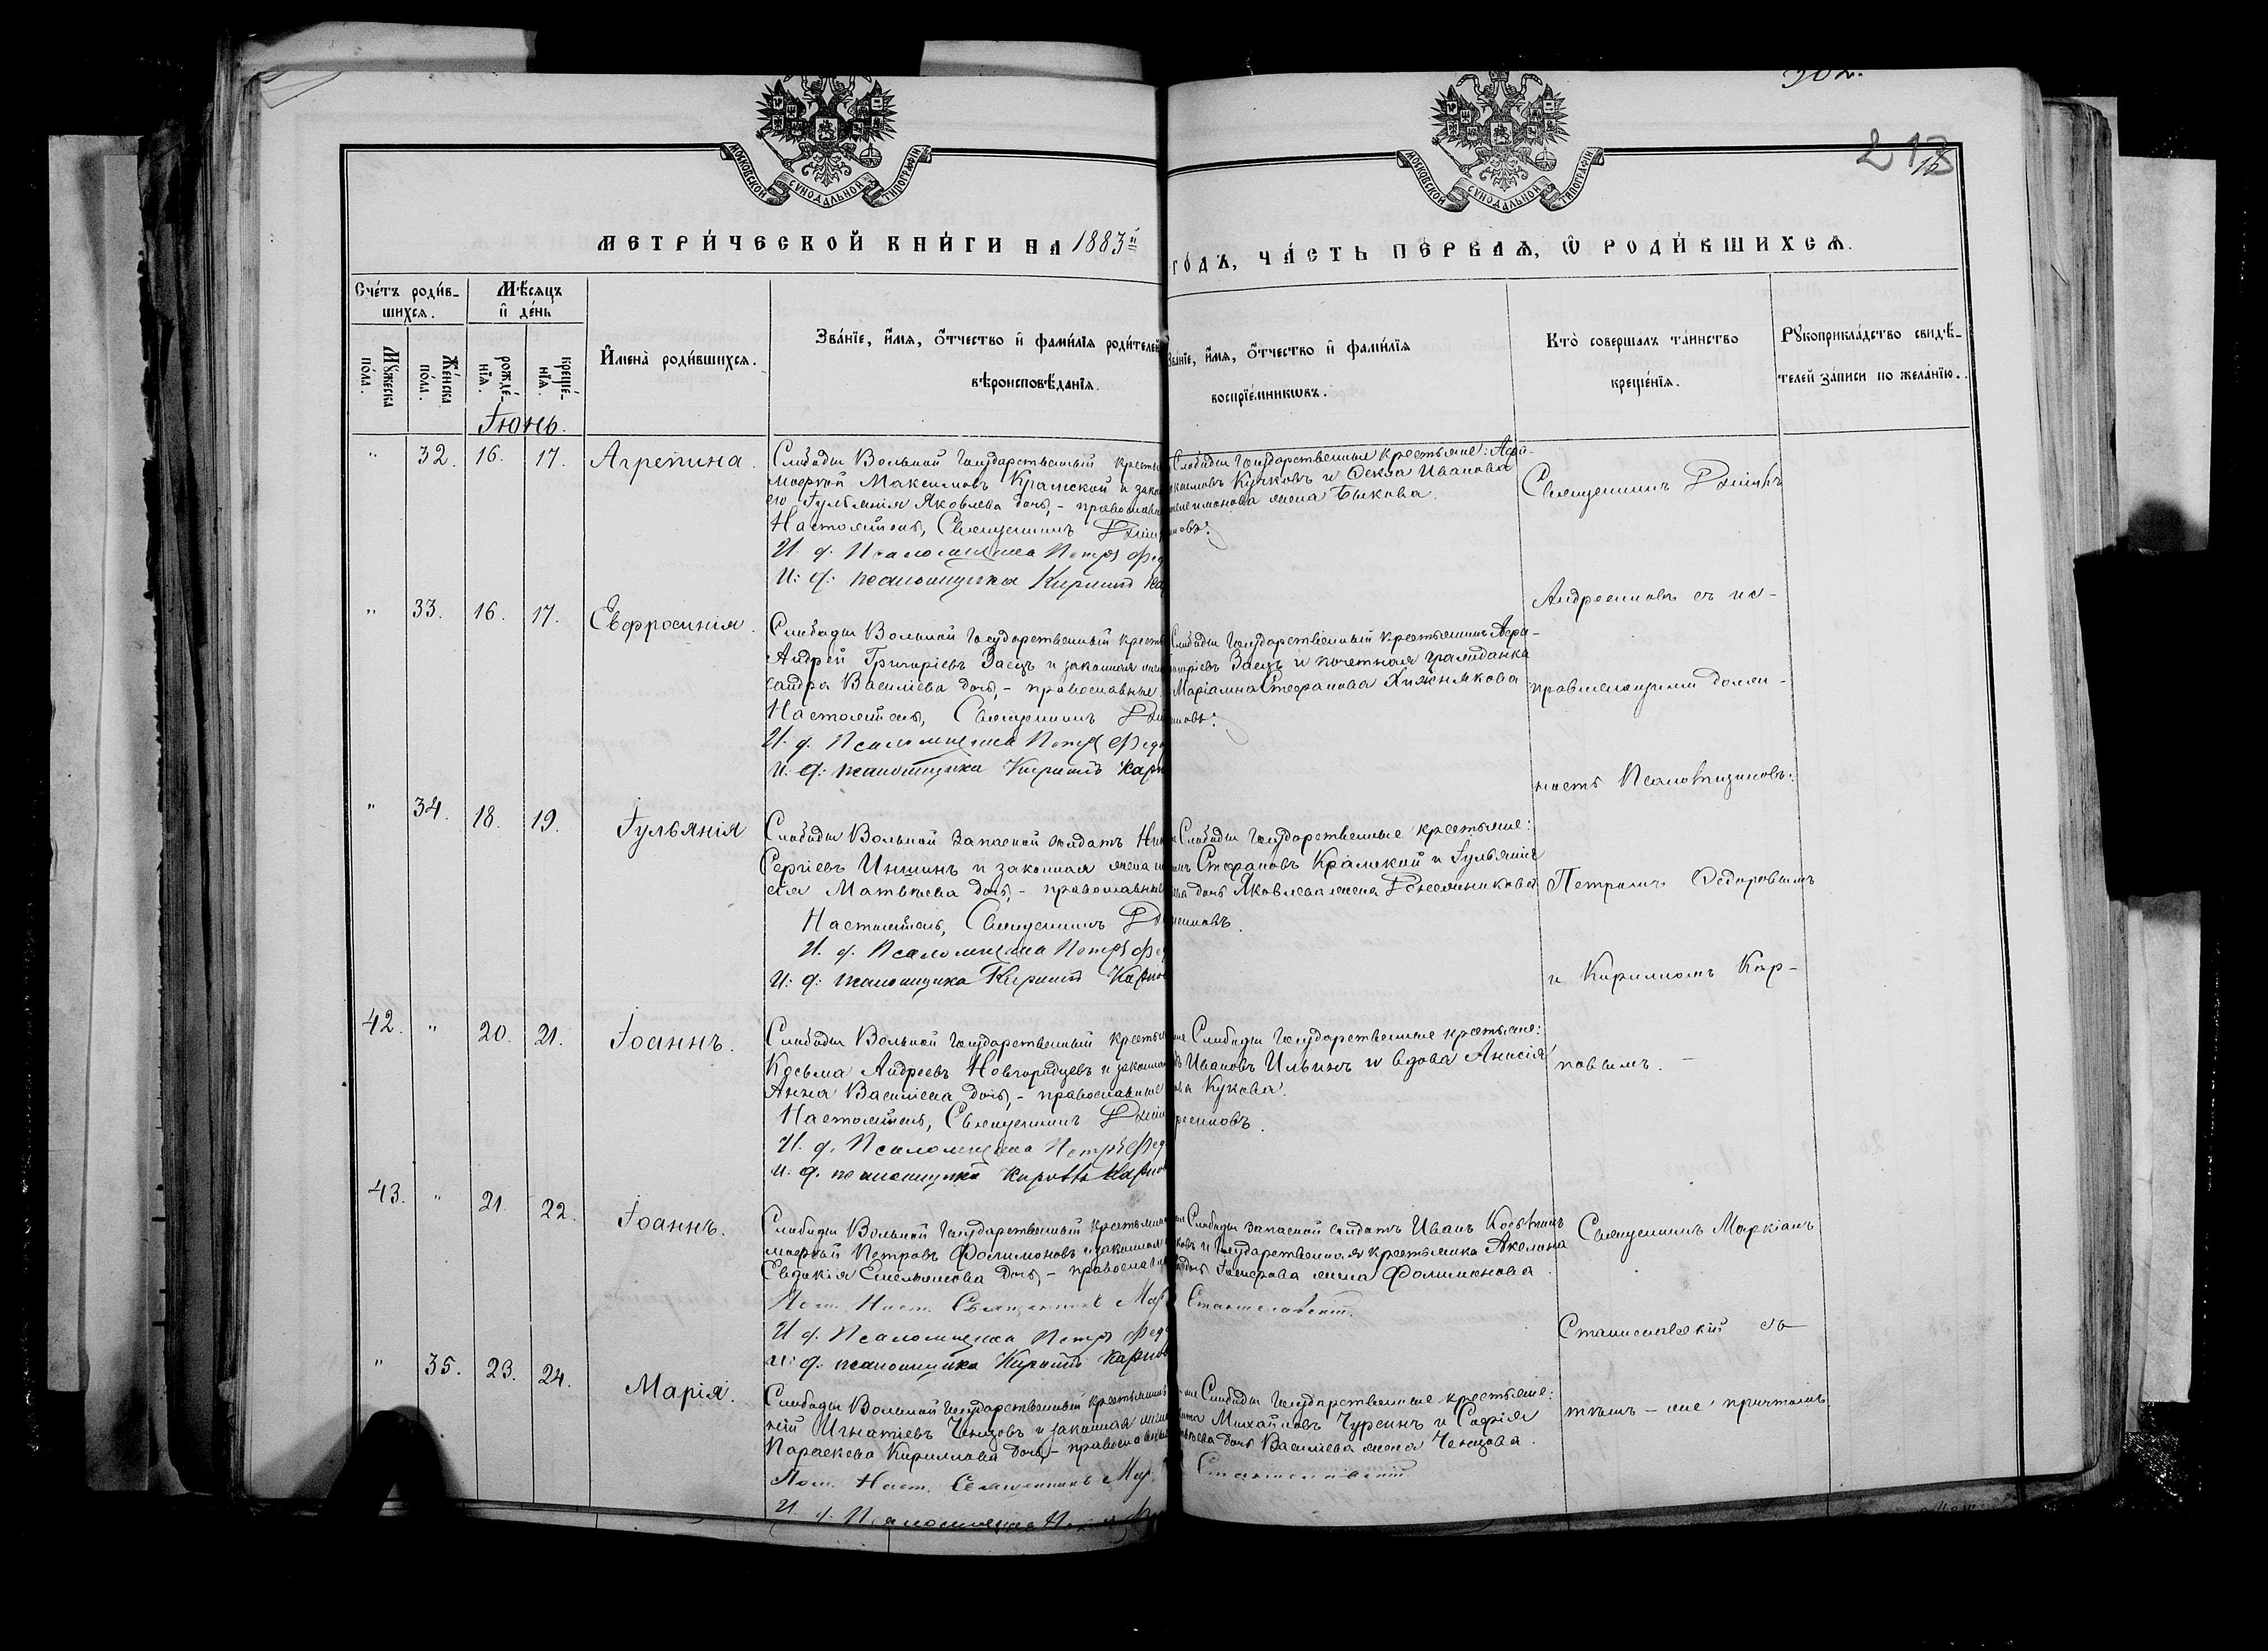 302.
213
МОСКОВСКОЙ СУНОДАЛЬНОЙ ТИПОГРАФІИ
МОСКОВСКОЙ СУНОДАЛЬНОЙ ТИПОГРАФІИ
МЕТРИ́ЧЕСКОЙ КНИ́ГИ НА 1883й
ГО́ДЪ, ЧА́СТЬ ПЕ́РВАѦ, Ѡ РОДИ́ВШИХСѦ.
Сче́тъ роди́вшихсѧ.
Мѣ́сѧцъ и҆ де́нь
Мꙋ́жеска по́ла.
Же́нска по́ла.
рожде́нїѧ.
креще́нїѧ.
И҆мена̀ роди́вшихсѧ.
Зва́нїе, и҆́мѧ, ѻ҆́тчество и҆ фами́лїѧ роди́телей
вѣроисповѣ́данїѧ.
Зва́нїе, и҆́мѧ, ѻ҆́тчество и҆ фами́лїѧ
воспрїе́мникѡвъ.
Кто̀ соверша́лъ та́инство
креще́нїѧ.
Рꙋкоприкла́дство свидѣ́-
телей за́писи по жела́нїю.
Іюнь.
" 32. 16. 17. Агрепина.
Слободы Вольной Государственный кресть
Максимовъ Крамской и зако
Іульянія Яковлева дочь, - православн
Настоятель, Священникъ
И. д. Псаломщика Петръ Фед
И: д: псаломщика Кириллъ Ка
Слободы Государственные крестьяне:
Кучковъ и Ѳекла Иванова
жена Быкова.
новъ:
Священникъ
" 33. 16. 17. Евфросинія.
Слободы Вольной Государственный кресть
Андрей Григоріевъ Заецъ и законная жена
сандра Василіева дочь, - православные
Настоятель, Священникъ
И. д. Псаломщика Петръ Федо
И: д: псаломщика Кириллъ Карп
Слободы Государственный крестьянинъ
Заецъ и почетная гражданка
Маріамна Стефанова Хижнякова
новъ:
Андреенковъ съ ис-
правляющими долж-
ность Псаломщиковъ:
" 34. 18. 19. Іульянія
Слободы Вольной запасной солдатъ
Сергіевъ Иншинъ и законная жена
Матвѣева дочь, - православные
Настоятель, Священникъ
И. д. Псаломщика Петръ Фед
И: д: псаломщика Кириллъ Карпов
Слободы Государственные крестьяне:
Стефановъ Крамской и Іульянія
дочь Яковлева жена
Петромъ Ѳедоровымъ
и Кирилломъ Кар-
42. " 20. 21. Іоаннъ.
Слободы Вольной Государственный кресть
Косьма Андреевъ Новгородцевъ и законная
Анна Василіева дочь, - православные
Настоятель, Священникъ
И. д. Псаломщика Петръ Фед
И: д. псаломщика Кириллъ Карпов
Слободы Государственные крестьяне:
Ивановъ Ильинъ и вдова Анисія
Кукова.
реенковъ.
повымъ. -
43. " 21. 22. Іоаннъ.
Слободы Вольной Государственный крестьянин
Петровъ Филимоновъ и законная
Евдокія Емельянова дочь, - православн
Священникъ Мар
И. д. Псаломщика Петръ Фед
И: д: псаломщика Кириллъ Карпов
Слободы запасной солдатъ Иванъ
и Государственная крестьянка Акилина
дочь жена Филимонова.
Станиславскій.
Священникъ Маркіанъ
Станиславскій съ
" 35. 23. 24. Марія.
Слободы Вольной Государственный крестьянинъ
Игнатіевъ Ченцовъ и законная жена
Параскева Кириллова дочь, - православные
Священникъ Мар
И. д. Псаломщика Петръ
Слободы Государственные крестьяне:
Михайловъ Чурсинъ и Софія
дочь Василіева жена Ченцова.
Станиславскій
тѣмъ-же причтомъ